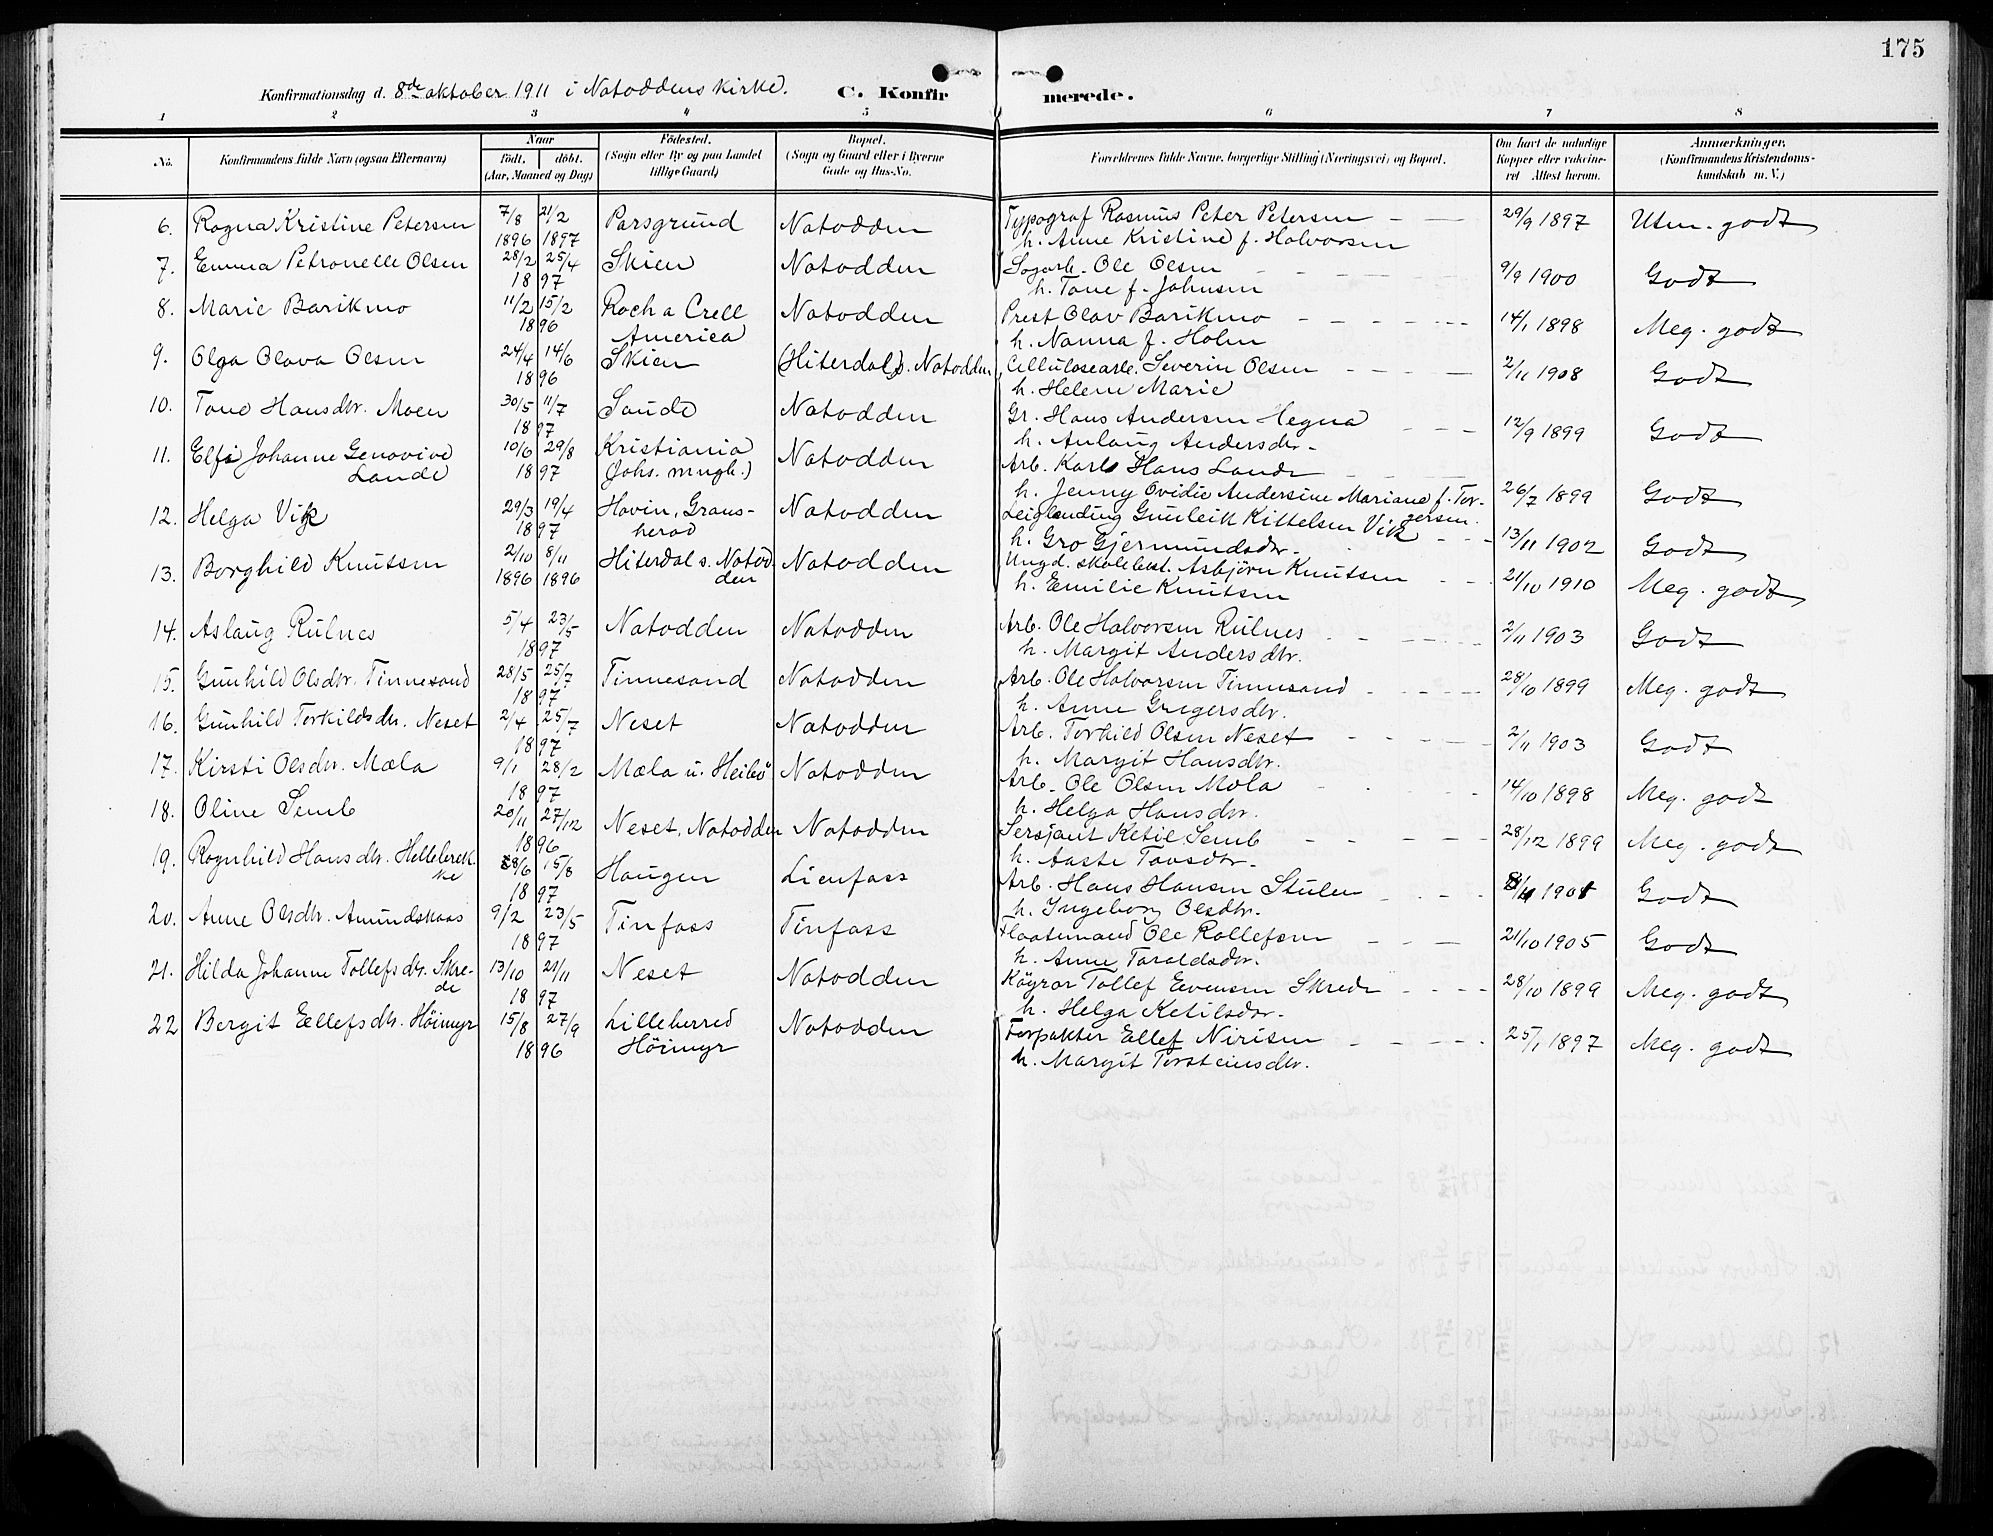 175
Konfirmationsdag d. 8de oktober 1911 i Notoddens kirke.
C. Konfir merede.
1 2 3 4 5 6 7 8
No. Konfirmandens fulde Navn (ogsaa Efternavn) Naar födt. döbt. (Aar, Maaned og Dag) Födested. (Sogn eller By og paa Landet tillige Gaard) Bopæl. (Sogn og Gaard eller i Byerne Gade og Hus-No. Forældrenes fulde Navne, borgerlige Stilling (Næringsvei) og Bopæl. Om havt de naturlige Kopper eller vakcineret Attest herom. Anmærkninger. (Konfirmandens Kristendomskundskab m. V.)
6. Ragna Kristine Petersen 7/8 1896 21/2 1897 Porsgrund Notodden Typograf Rasmus Peter Petersen 29/9 1897 Utm. godt
h. Anne Kristine f. Halvorsen
7. Emma Petronelle Olsen 28/2 25/4 1897 Skien Notodden Sagarb. Ole Olsen 9/9 1900 Godt
h. Tone f. Johnsen
8. Marie Barikmo 11/2 15/2 1896 Roch a Crell America Notodden Prest Olav Barikmo 14/1 1898 Meg. godt
h. Nanna f. Holm
9. Olga Olava Olsen 24/4 14/6 1896 Skien (Hiterdal) s. Notodden Cellulosearb. Severin Olsen 2/11 1908 Godt
h. Helene Marie
10. Tone Hansdtr. Moen 30/5 11/7 1897 Saude Notodden Gr. Hans Andersen Hegna 12/9 1899 Godt
h. Anlaug Andersdtr.
11. Elfi Johanne Genovive Lande 10/6 29/8 1897 Kristiania (Johs. mngh.) Notodden Arb. Karl Hans Lande
h. Jenny Ovidie Andersine Mariane f. Torgersen. 26/7 1899 Godt
12. Helga Vik 29/3 19/4 1897 Hovin, Gransherad Notodden Leiglending Gunleik Kittelsen Vik 13/11 1902 Godt
h. Gro Gjermundsdtr.
13. Borghild Knutsen 2/10 1896 8/11 1896 Hiterdal s. Notodden Notodden Ungd. skolebest. Asbjörn Knutsen 21/10 1910 Meg. godt
h. Emilie Knutsen
14. Aslaug Rulnes 5/4 23/5 1897 Notodden Notodden Arb. Ole Halvorsen Rulnes 2/11 1903 Godt
h. Margit Andersdtr.
15. Gunhild Olsdtr. Tinnesand 28/5 25/7 1897 Tinnesand Notodden Arb. Ole Halvorsen Tinnesand 28/10 1899 Meg. godt
h. Anne Gregersdtr.
16. Gunhild Torkildsdtr. Neset 2/4 25/7 1897 Neset Notodden Arb. Torkild Olsen Neset 2/11 1903 Godt
h. Margit Hansdtr.
17. Kirsti Olsdtr. Mæla 9/1 28/2 1897 Mæla u. Heibö Notodden Arb. Ole Olsen Mæla 14/10 1898 Meg. godt
h. Helga Hansdtr.
18. Oline Semb 20/11 27/12 1896 Neset, Notodden Notodden Sersjant Ketil Semb 28/12 1899 Meg. godt
h. Aaste Tovsdtr.
19. Ragnhild Hansdtr. Hellebrekke 15/8 1897 Haugen Lienfoss Arb. Hans Hansen Stulen Godt
h. Ingeborg Olsdtr.
20. Anne Olsdtr. Amundskaas 9/2 23/5 1897 Tinfoss Tinfoss Ole Rollefsen 21/10 1905 Godt
h. Anne Taraldsdtr.
21. Hilda Johanne Tollefsdtr. Skrede 13/10 21/11 1897 Neset Notodden Köyrar Tollef Evensen Skrede 28/10 1899 Meg. godt
h. Helga Ketilsdtr.
22 Bergit Ellefsdtr. Höimyr 15/8 27/9 1896 Lilleherred Höimyr Notodden Forpakter Ellef Nirisen 25/1 1897 Meg. godt
h. Margit Torsteinsdtr.